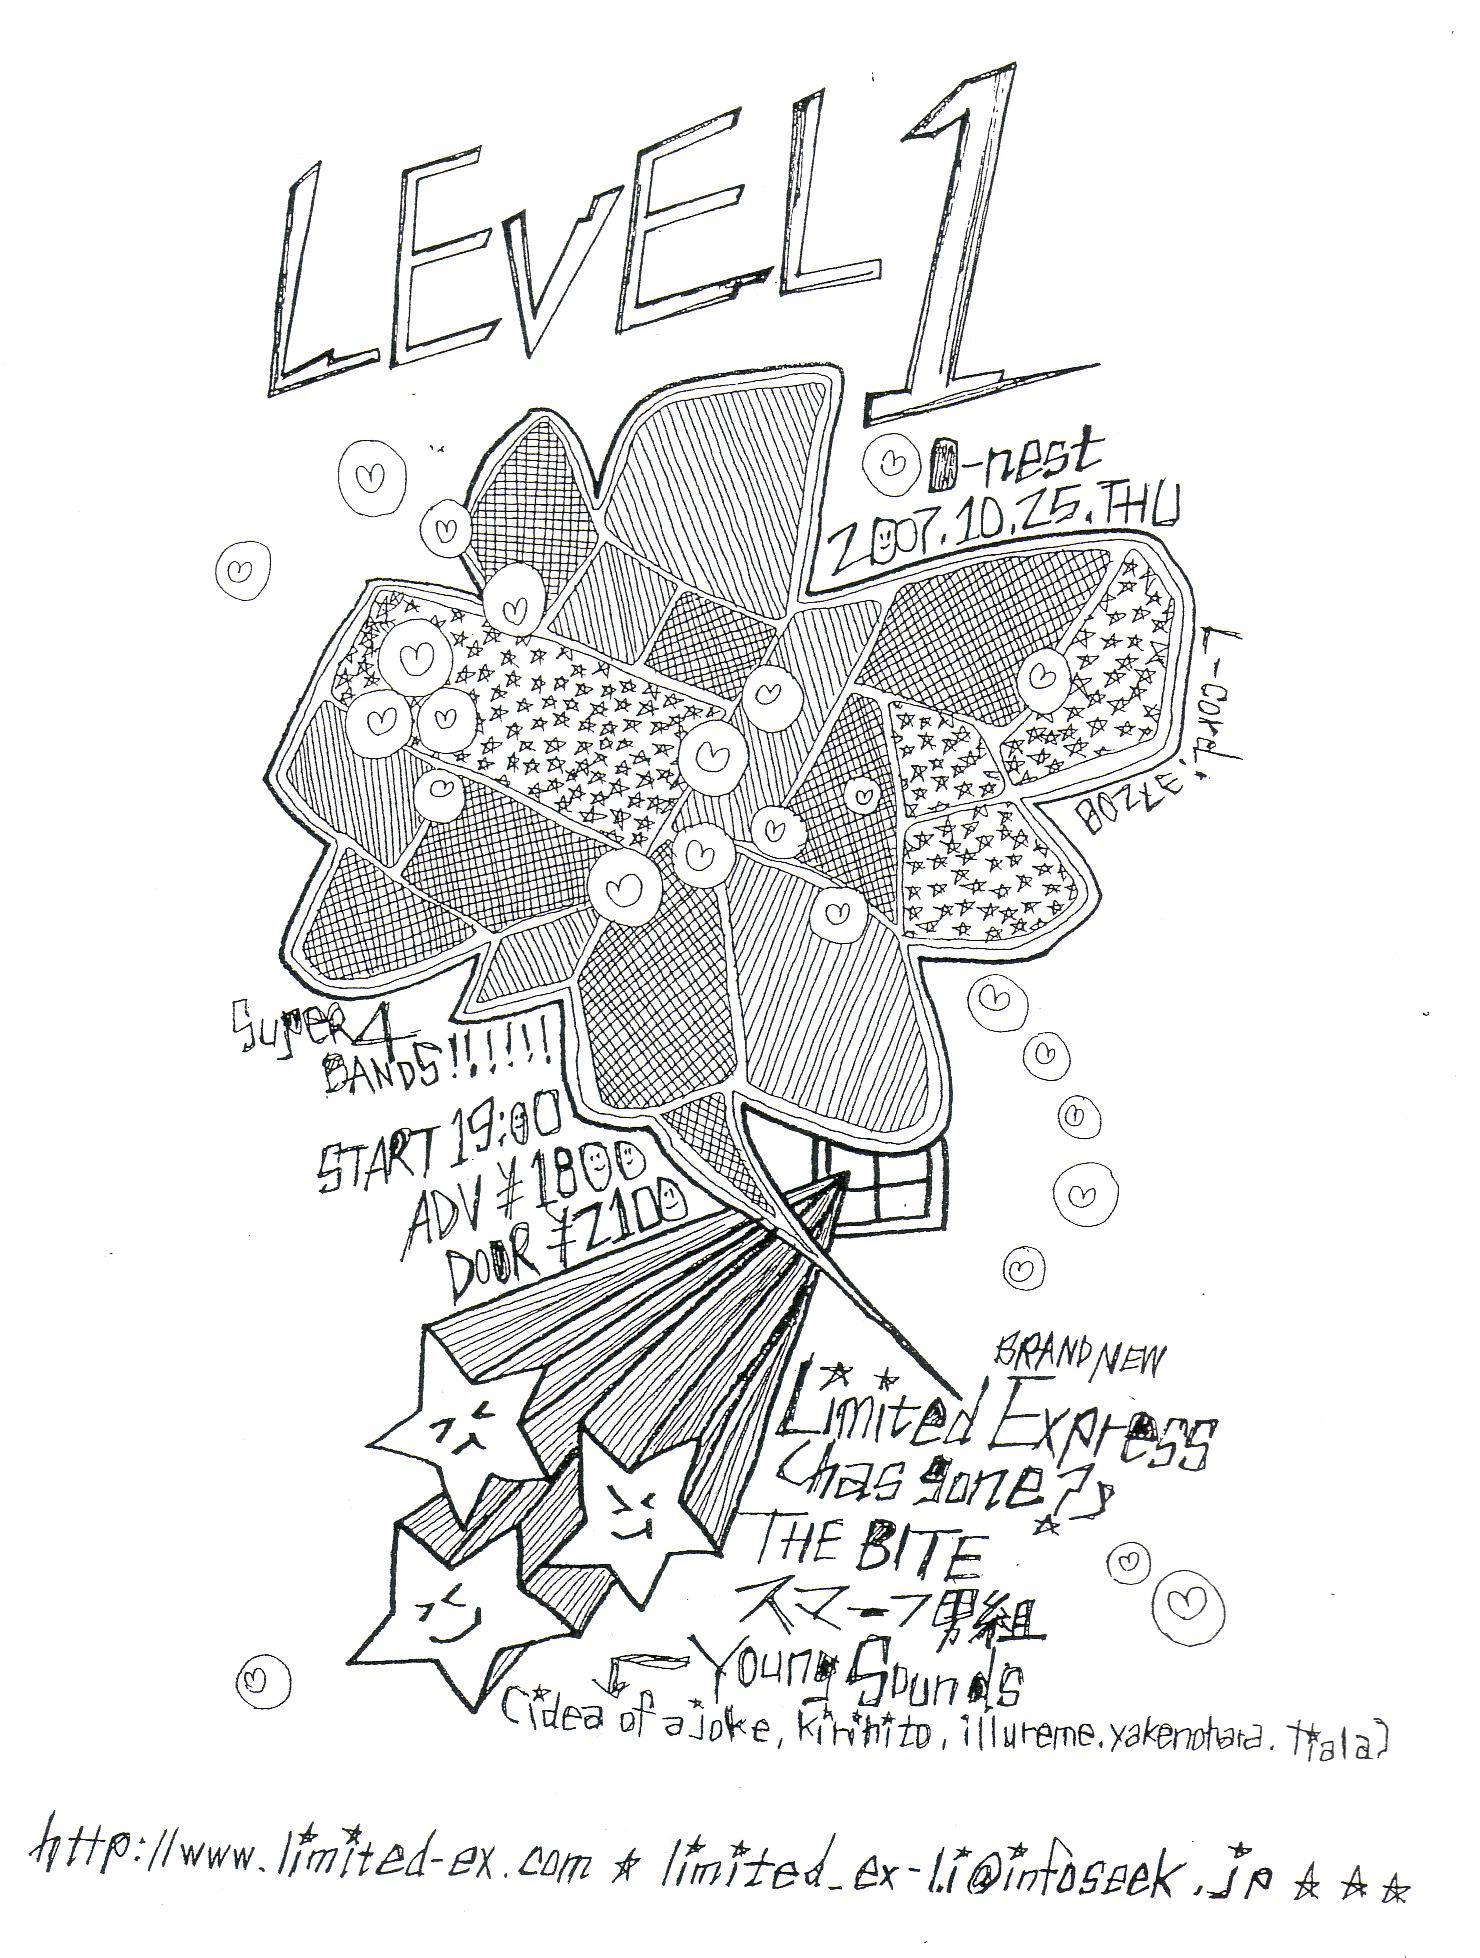 LEVEL 1
O-nest
2007.10.25.THU
Super 4
BANDS!!!!!!
START 19:00
ADV ¥1800
DOOR ¥2100
BRAND NEW
Limited Express
(has gone?)
THE BITE
スマーフ男組
Young Sounds
(idea of a joke, kirihito, illureme. yakenohara. Tiala)
http://www.limited-ex.com ☆ limited_ex-1.i@infoseek.jp ☆☆☆